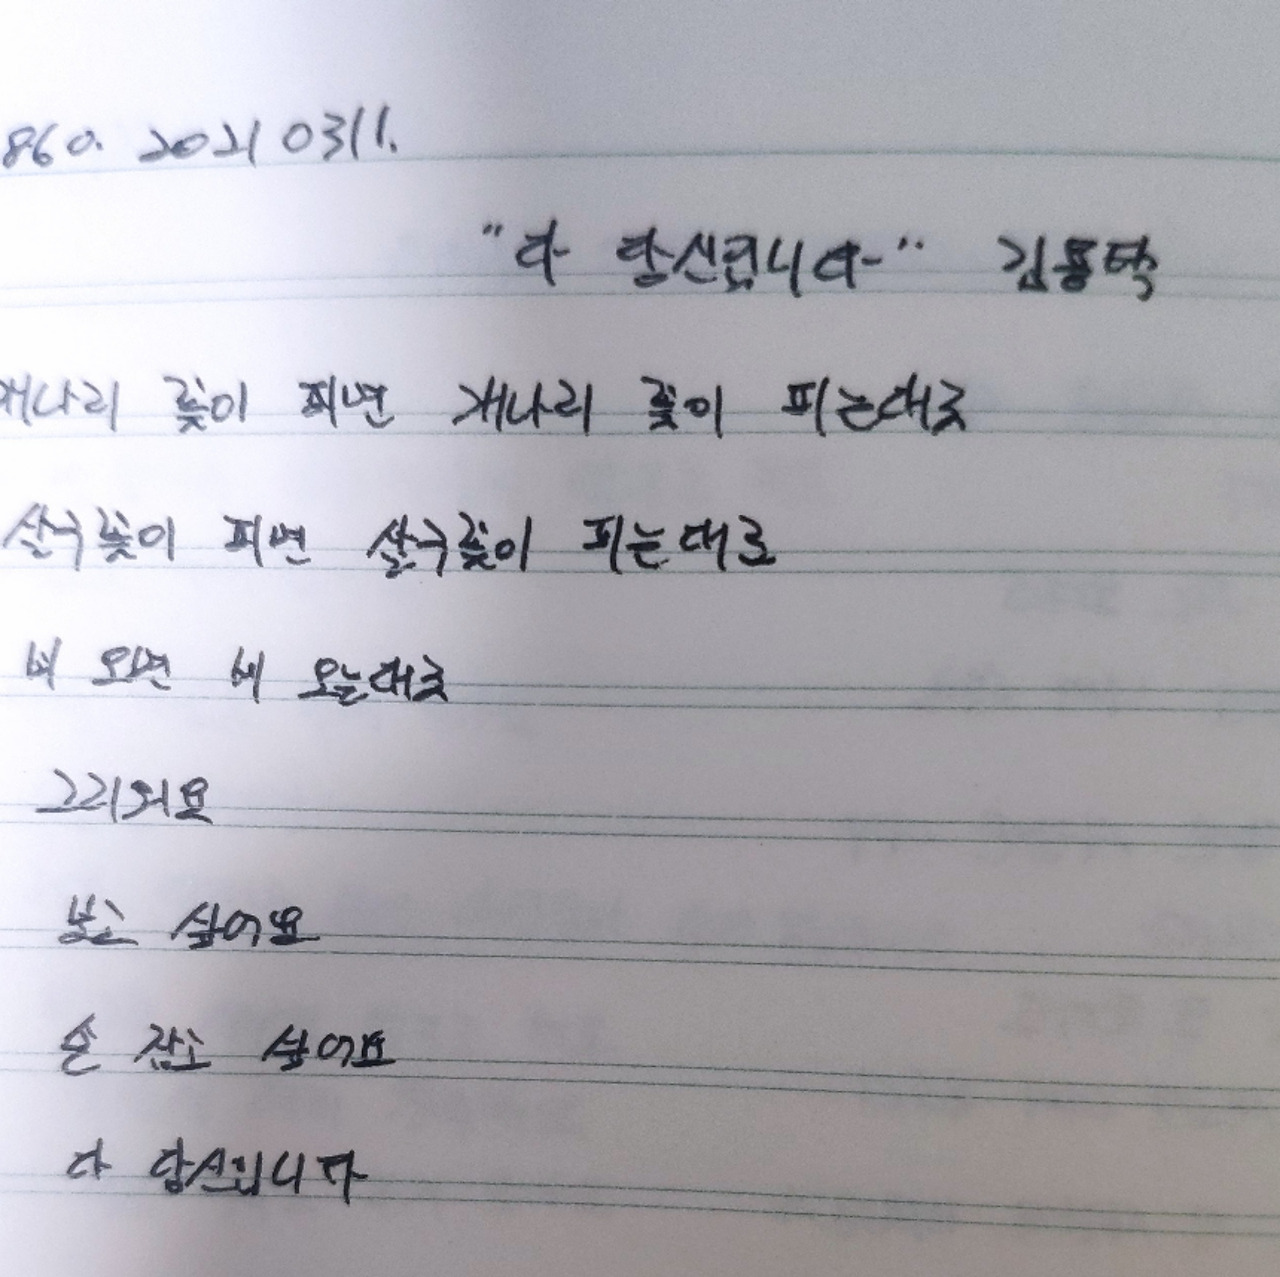 860. 2021 0311.
"다 당신입니다" 김용택
개나리 꽃이 피면 개나리 꽃이 피는대로
살구꽃이 피면 살구꽃이 피는대로
비 오면 비 오는대로
그리워요
보고 싶어요
손 잡고 싶어요
다 당신입니다